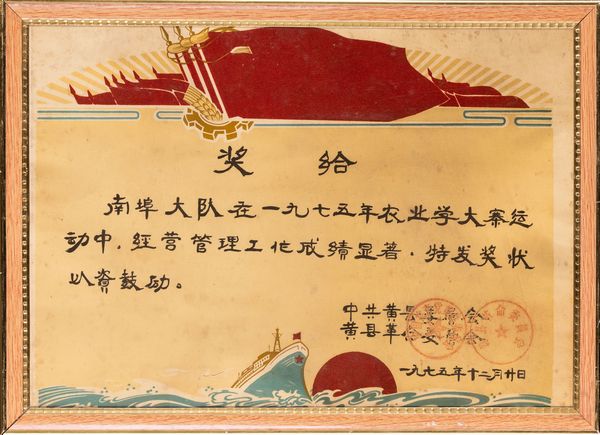 奖给
南埠大队在一九七五年农业学大寨运
动中，经营管理工作成绩显著，特发奖状
以资鼓励。
中共黄县委员会
黄县革命委员会
一九七五年十二月廿日